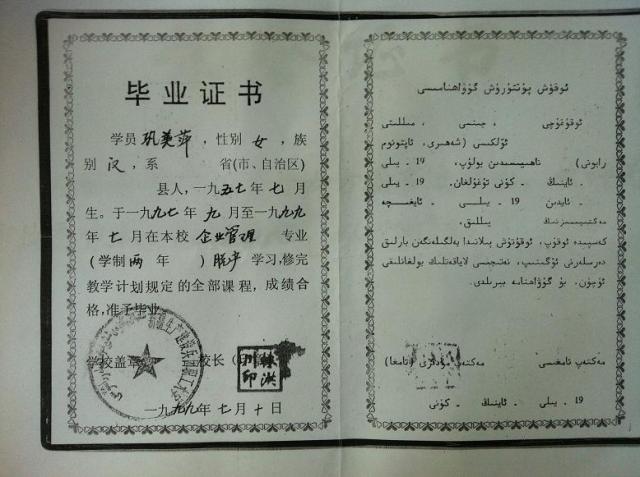 毕业证书
学员 巩美萍，性别 女，族
别 汉，系 省(市、自治区)
县人，一九五七年 七 月
生。于一九九七年 九 月至一九九九
年 七 月在本校 企业管理 专业
(学制 两 年 ) 脱产 学习，修完
教学计划规定的全部课程，成绩合
格，准予毕业。
学校盖章 校长（印
陈洪
川印
一九九九年 七 月 十 日
ئوقۇش پۈتتۈرۈش گۇۋاھنامىسى
ئوقۇغۇچى ، جىنسى ، مىللىتى
ئۆلكىسى (شەھىرى، ئاپتونوم
رايونى) ناھىيىسىدىن بولۇپ، 19 ـ يىلى
ـ ئاينىڭ ـ كۈنى تۇغۇلغان. 19 ـ يىلى
ـ ئايدىن 19 ـ يىلى ـ ئايغىچە
مەكتىپىمىزنىڭ يىللىق
كەسپىدە ئوقۇپ، ئوقۇتۇش پىلانىدا بەلگىلەنگەن بارلىق
دەرسلەرنى ئۆگىنىپ، نەتىجىسى لاياقەتلىك بولغانلىقى
ئۈچۈن، بۇ گۇۋاھنامە بېرىلدى.
مەكتەپ تامغىسى مەكتەپ مۇدىرى (تامغا)
19 ـ يىلى ـ ئاينىڭ ـ كۈنى